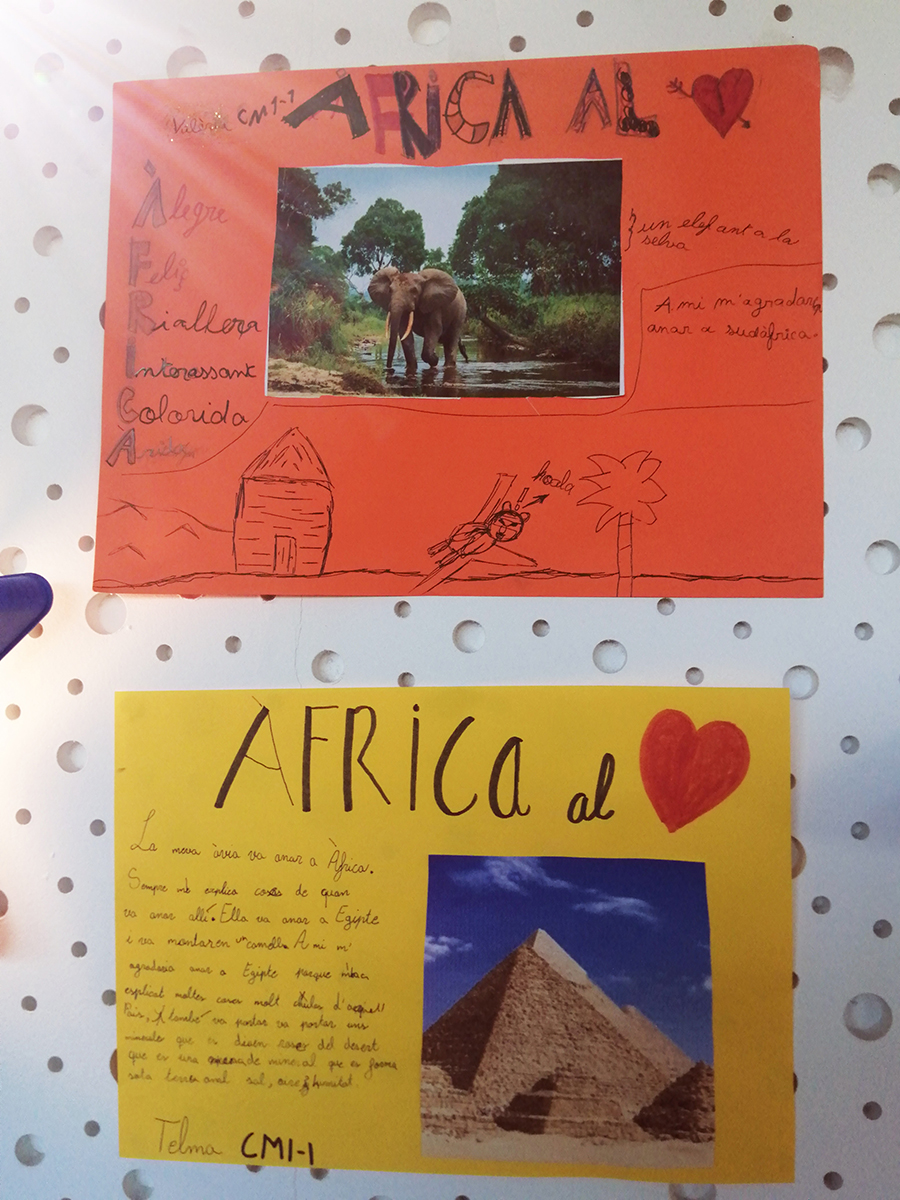 Valèria CM1-1
ÀFRiCA AL
Àlegre
Feliç
Riallera
Interassant
Colorida
À
un elefant a la
selva
A mi m'agradaria
anar a sudàfrica.
koala
ÀFRiCa al
La meva àvia va anar a Àfrica.
Sempre me explica coses de quan
va anar allí. Ella va anar a Egipte
i va montar en un camell. A mi m'
agradaria anar a Egipte parque
esplicat moltes coses molt chules d'aquell
Pais, també va portar va portar uns
minerals que es diuen roses del desert
que es una de mineral que es forma
sota terra amb sal, aire i humitat.
Telma CM1-1